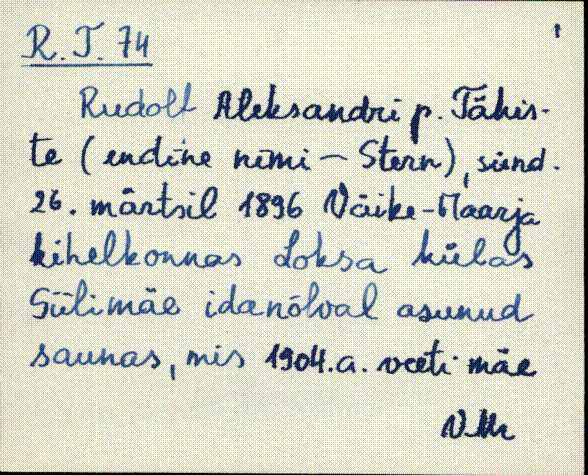 R.T. 74
Rudolf Aleksandri p. Tähis-
te (endine nimi – Stern), sünd.
26. märtsil 1896 Väike-Maarja
kihelkonnas Loksa külas
Sülimäe idanõlval asunud
saunas, mis 1904.a. veeti mäe